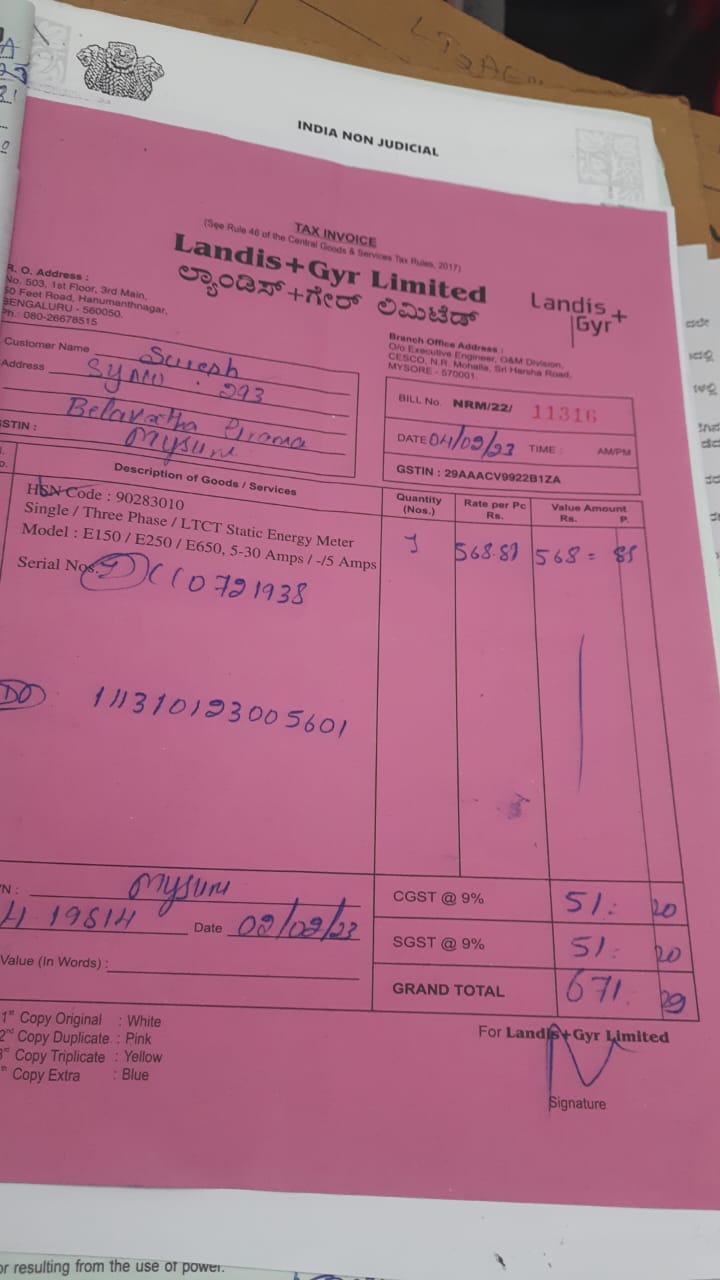 INDIA NON JUDICIAL
TAX INVOICE
(See Rule 46 of the Central Goods & Services Tax Rules, 2017)
Landis+Gyr Limited
ಲ್ಯಾಂಡಿಸ್+ಗೇರ್ ಲಿಮಿಟೆಡ್
Landis+
Gyr
R. O. Address :
No. 503, 1st Floor, 3rd Main,
50 Feet Road, Hanumanthnagar,
BENGALURU - 560050.
Ph.: 080-26678515
Branch Office Address :
O/o Executive Engineer, O&M Division,
CESCO, N.R. Mohalla, Sri Harsha Road,
MYSORE - 570001.
Customer Name Suresh
Address 293
Mysuru
GSTIN :
BILL No. NRM/22/ 11316
DATE 04/02/23 TIME : AM/PM
GSTIN : 29AAACV9922B1ZA
Description of Goods / Services
Quantity (Nos.)
Rate per Pc Rs.
Value Amount Rs. P.
HSN Code : 90283010
Single / Three Phase / LTCT Static Energy Meter
Model : E150 / E250 / E650, 5-30 Amps / -/5 Amps
1 568.81 568 =
Serial Nos. 0721938
DO 111310123005601
N : Mysuru
19814 Date 02/02/23
Value (In Words) :
CGST @ 9% 51. 20
SGST @ 9% 51. 20
GRAND TOTAL 671. 29
1st Copy Original : White
2nd Copy Duplicate : Pink
3rd Copy Triplicate : Yellow
Copy Extra : Blue
For Landis+Gyr Limited
Signature
or resulting from the use of power.